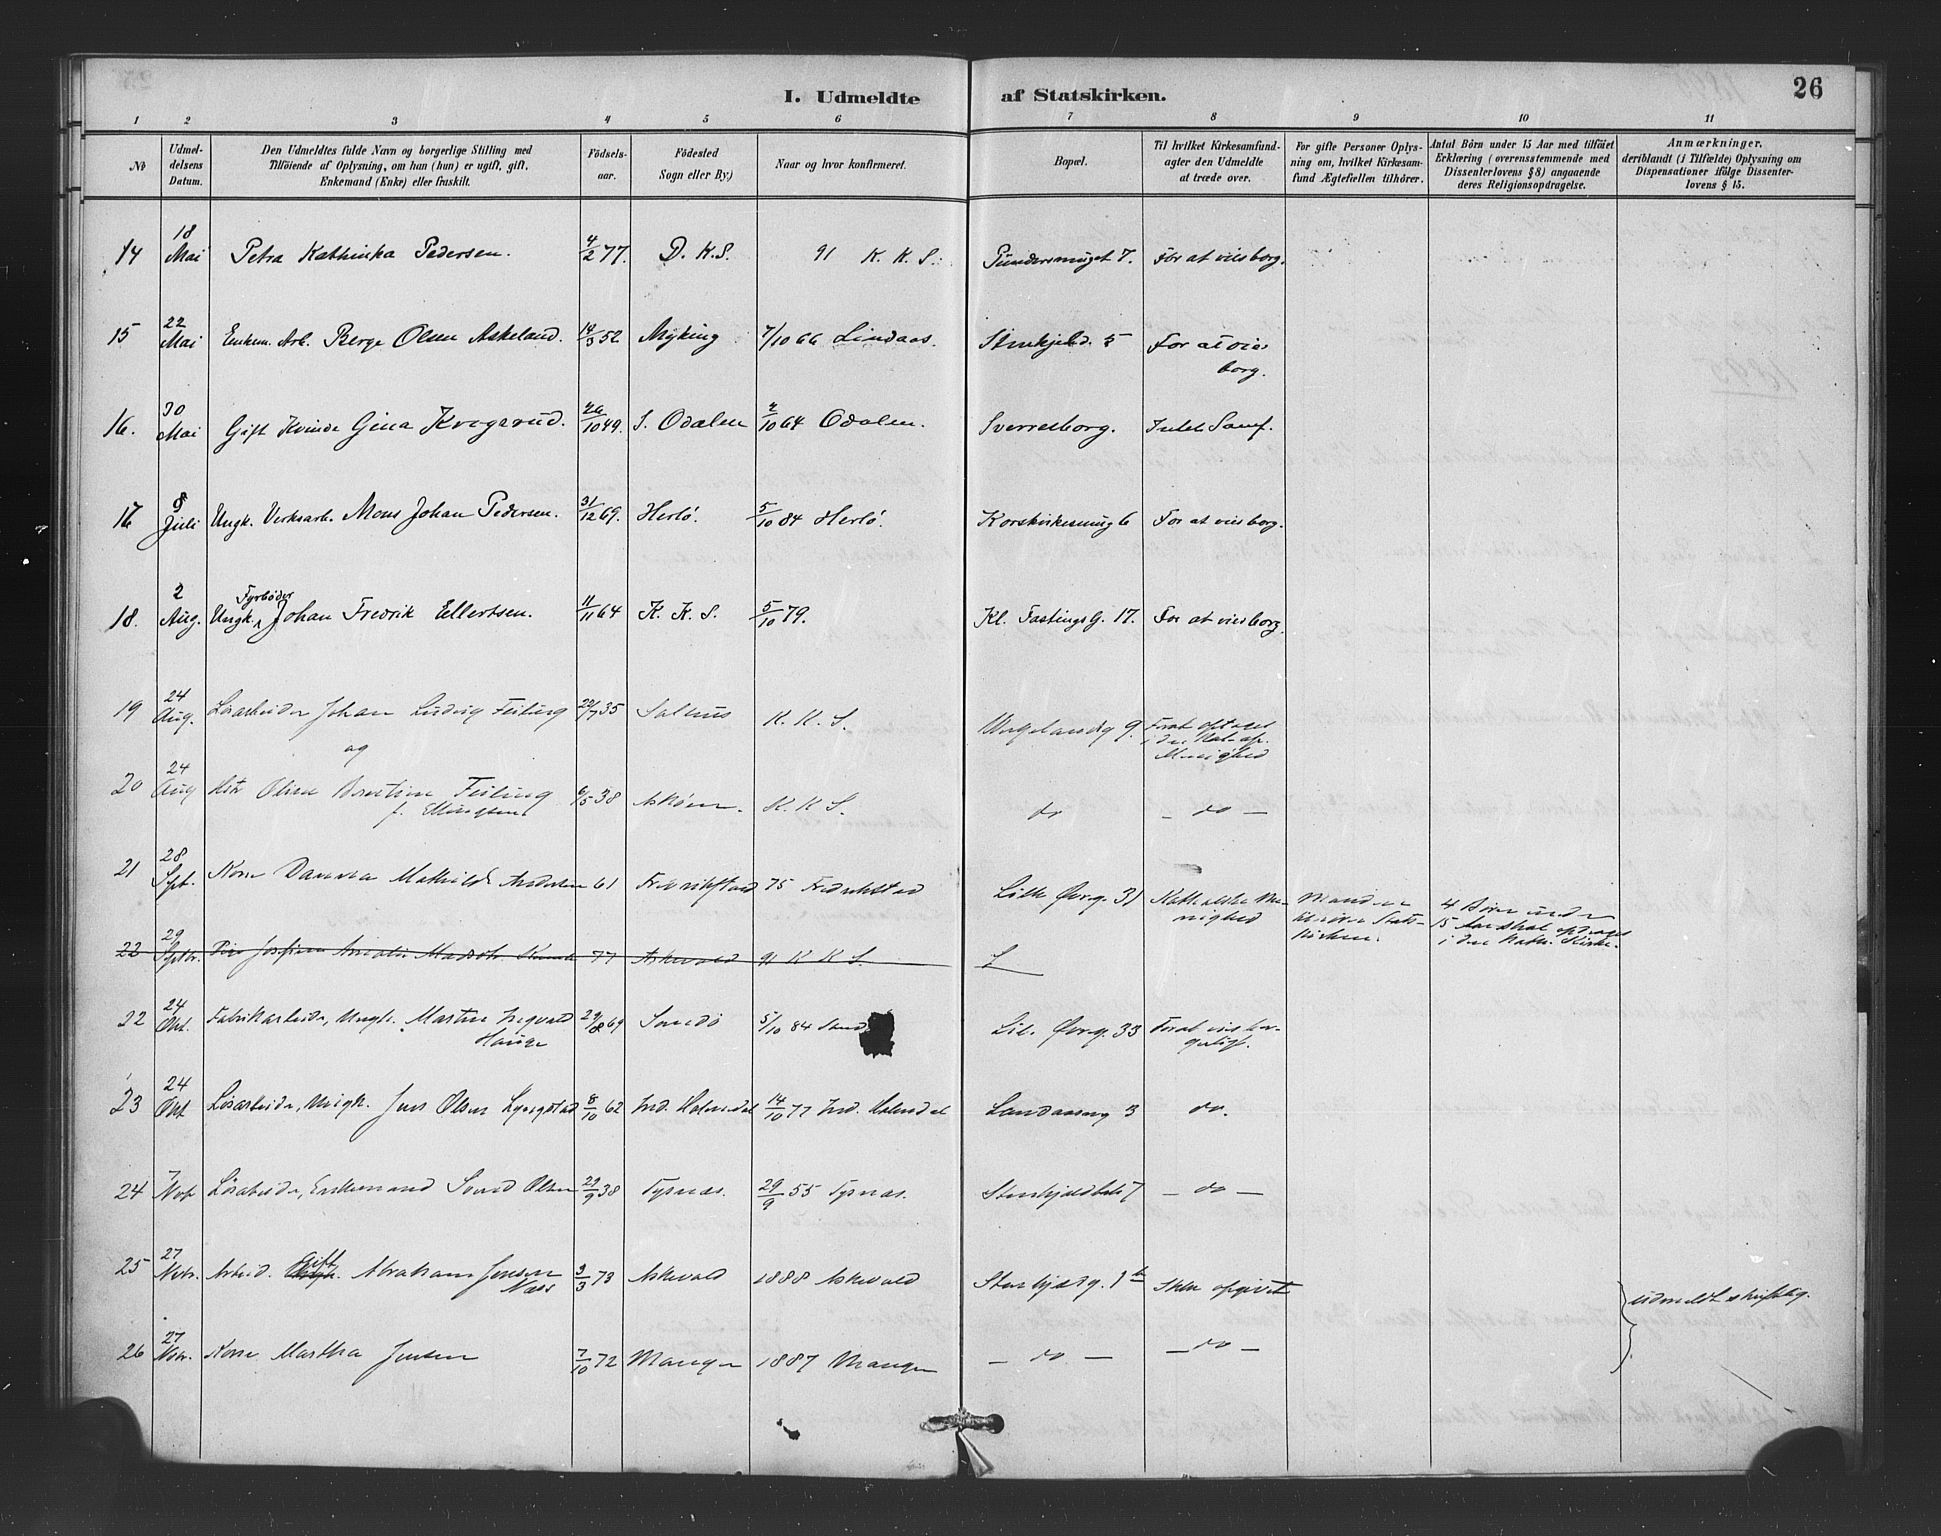 26
I. Udmeldte af Statskirken.
1 2 3 4 5 6 7 8 9 10 11
No
Udmeldelsens Datum.
Den Udmeldtes fulde Navn og borgerlige Stilling med
Tilföiende af Oplysning, om han (hun) er ugift, gift,
Enkemand (Enke) eller fraskilt.
Födselsaar.
Födested
Sogn eller By.)
Naar og hvor konfirmeret.
Bopæl.
Til hvilket Kirkesamfund-
agter den Udmeldte
at træde over.
For gifte Personer Oplys-
ning om, hvilket Kirkesam-
fund Ægtefællen tilhörer.
Antal Börn under 15 Aar med tilföiet
Erklæring (overensstemmende med
Dissenterlovens § 8) angaaende
deres Religionsopdragelse.
Anmærkninger,
deriblandt (i Tilfælde) Oplysning om
Dispensationer ifölge Dissenter-
lovens § 15.
14 18 Mai Petra Kathinka Pedersen. 4/2 77. D. K. S. 91 K. K. S. 7. For at vies borg.
15 22 Mai Enkem. Arb. Berge Olsen Askeland. 14/3 52 Myking 7/10 66 Lindaas. Stenkjeld. 5 For at vies
borg.
16. 30 Mai Gift Kvinde Gina Kregsrud. 26/10 49. S. Odalen 2/10 64 Odalen. Sverresborg. Samf.
17 8 Juli Ungk. Verksarb. Mons Johan Pedersen. 31/12 69. Herlö. 5/10 84 Herlö. Korskirkesmug 6 For at vies borg.
18. 2 Aug. Ungk. Fyrböder Johan Fredrik Ellertsen. 11/11 64 K. K. S. 5/10 79. Kl. Fastingsg. 17. For at vies borg.
19 24 Aug. Løsarbeider Johan Ludvig Feiling 22/7 35 Salhus K. K. S. 9. For at optages
i den Kath. ap.
Menighed
og
20 24 Aug Olina Feiling 6/5 38 Askøen. K. K. S. do — do —
f. Ellingsen
21 28 Sept. Kone Mathilde Andersen 61 Fredrikstad 75 Fredrikstad Lille Øvreg. 31 Katholske Me-
nighed Manden
tilhører Stats-
kirken. 4 Børn under
15 Aar skal opdrages
i den Kath. Kirke.
22 29 Septbr. Pige Josefine Amalie 77 Askevold 91 K K S.
22 24 Okt. Fabrikarbeider, Ungk. Martin Ingvald 29/8 69 Sandö 5/10 84 Lil. Øvreg. 33 For at vies bor-
gerligt.
Hauge
23 24 Okt Løsarbeider, Ungk. Jens Olsen 8/10 62 Ind. Holmedal 14/10 77 Ind. Holmedal Landaasvg 3 do.
24 7 Nov Løsarbeider, Enkemand Olsen 29/9 38 Tysnæs. 29/9 55 Tysnæs. 7 — do —
25 27 Novbr. Arbeid. Gift Abraham Jensen 3/3 73 Askevold 1888 Askevold Ikke opgivet
Næss
udmeldt skriftlig.
26 27 Novbr. Kone Martha Jensen 7/10 72 Manger 1887 Manger — do — — do —